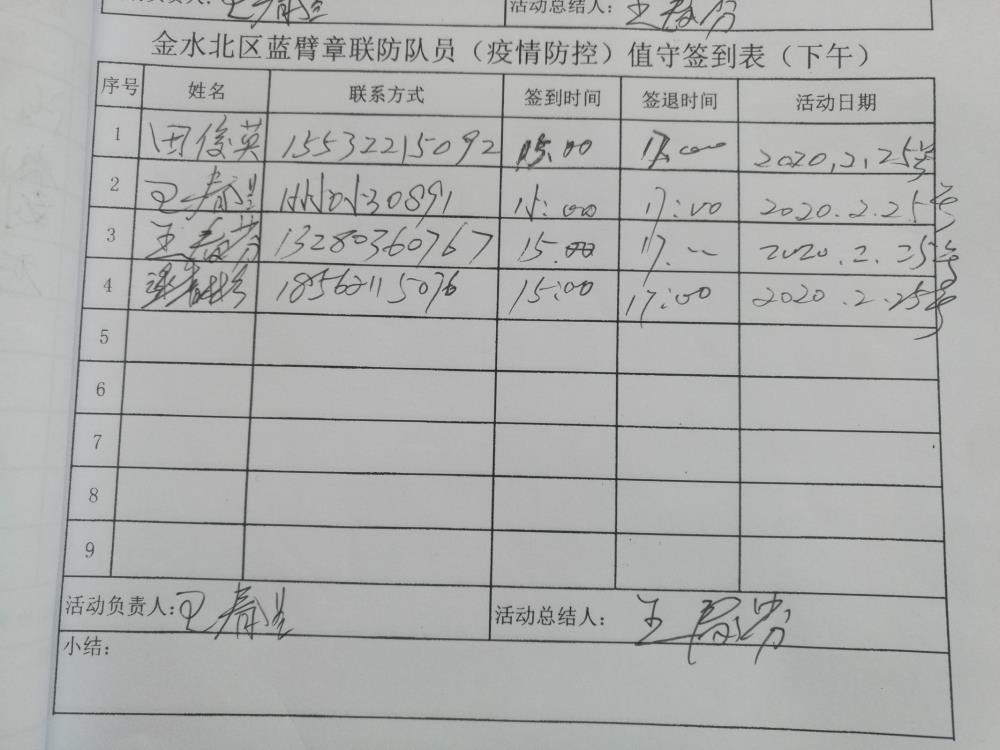 活动总结人：
金水北区蓝臂章联防队员（疫情防控）值守签到表（下午）
序号 姓名 联系方式 签到时间 签退时间 活动日期
1 田俊英 15532215092 15:00 17:00 2020.2.25号
2 王春 15:00 17:00 2020.2.25号
3 王 13280360767 15:00 17:00 2020.2.25号
4 18562115076 15:00 17:00 2020.2.25号
5
6
7
8
9
活动负责人：王春 活动总结人：王
小结：